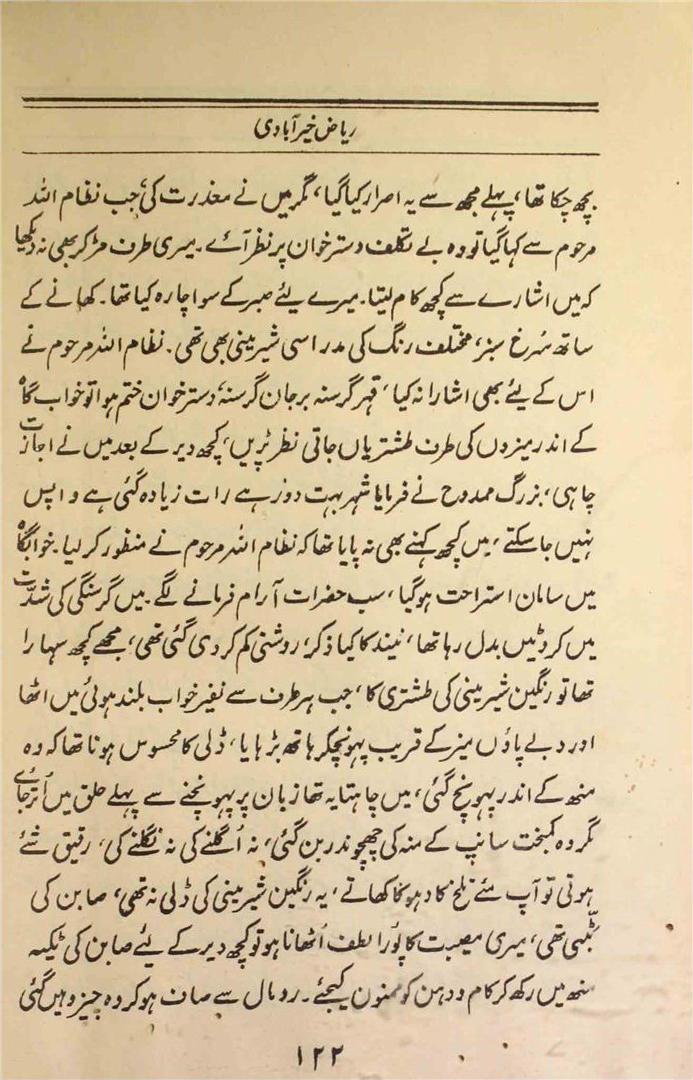 ریاض خیرآبادی
بچھ چکا تھا، پہلے مجھ سے یہ اصرار کیا گیا، مگر میں نے معذرت کی، جب نظام اللہ
مرحوم سے کہا گیا تو وہ بے تکلف دسترخوان پر نظر آئے۔ میری طرف مڑ کر بھی نہ دیکھا
کہ میں اشارے سے کچھ کام لیتا۔ میرے لئے صبر کے سوا چارہ کیا تھا۔ کھانے کے
ساتھ سُرخ سبز، مختلف رنگ کی مدراسی شیرینی بھی تھی۔ نظام اللہ مرحوم نے
اس کے لئے بھی اشارا نہ کیا، قہر گرسنہ بر جان گرسنہ، دسترخوان ختم ہوا تو خواب گاہ
کے اندر میزوں کی طرف طشتریاں جاتی نظر پڑیں، کچھ دیر کے بعد میں نے اجازت
چاہی، بزرگ ممدوح نے فرمایا شہر بہت دور ہے رات زیادہ گئی ہے واپس
نہیں جا سکتے، میں کچھ کہنے بھی نہ پایا تھا کہ نظام اللہ مرحوم نے منظور کر لیا۔ خوابگاہ
میں سامان استراحت ہو گیا، سب حضرات آرام فرمانے لگے۔ میں گرسنگی کی شدّت
میں کروٹیں بدل رہا تھا، نیند کا کیا ذکر، روشنی کم کر دی گئی تھی، مجھے کچھ سہارا
تھا تو رنگین شیرینی کی طشتری کا، جب ہر طرف سے نفیر خواب بلند ہوئی میں اٹھا
اور دبے پاؤں میز کے قریب پہونچکر ہاتھ بڑہایا، ڈلی کا محسوس ہونا تھا کہ وہ
منھ کے اندر پہونچ گئی، میں چاہتا یہ تھا زبان پر پہونچنے سے پہلے حلق میں اُتر جائے
مگر وہ کمبخت سانپ کے منہ کی چھچوندر بن گئی، نہ اُگلنے کی نہ نگلنے کی، رقیق شئے
ہوتی تو آپ مئے تلخ کا دہوکا کھاتے، یہ رنگین شیرینی کی ڈلی نہ تھی، صابن کی
بٹّی تھی، میری مصیبت کا پُورا لطف اُٹھانا ہو تو کچھ دیر کے لئے صابن کی ٹکیہ
منھ میں رکھ کر کام و دہن کو ممنون کیجئے۔ رومال سے صاف ہو کر وہ چیز وہیں گئی
۱۲۲